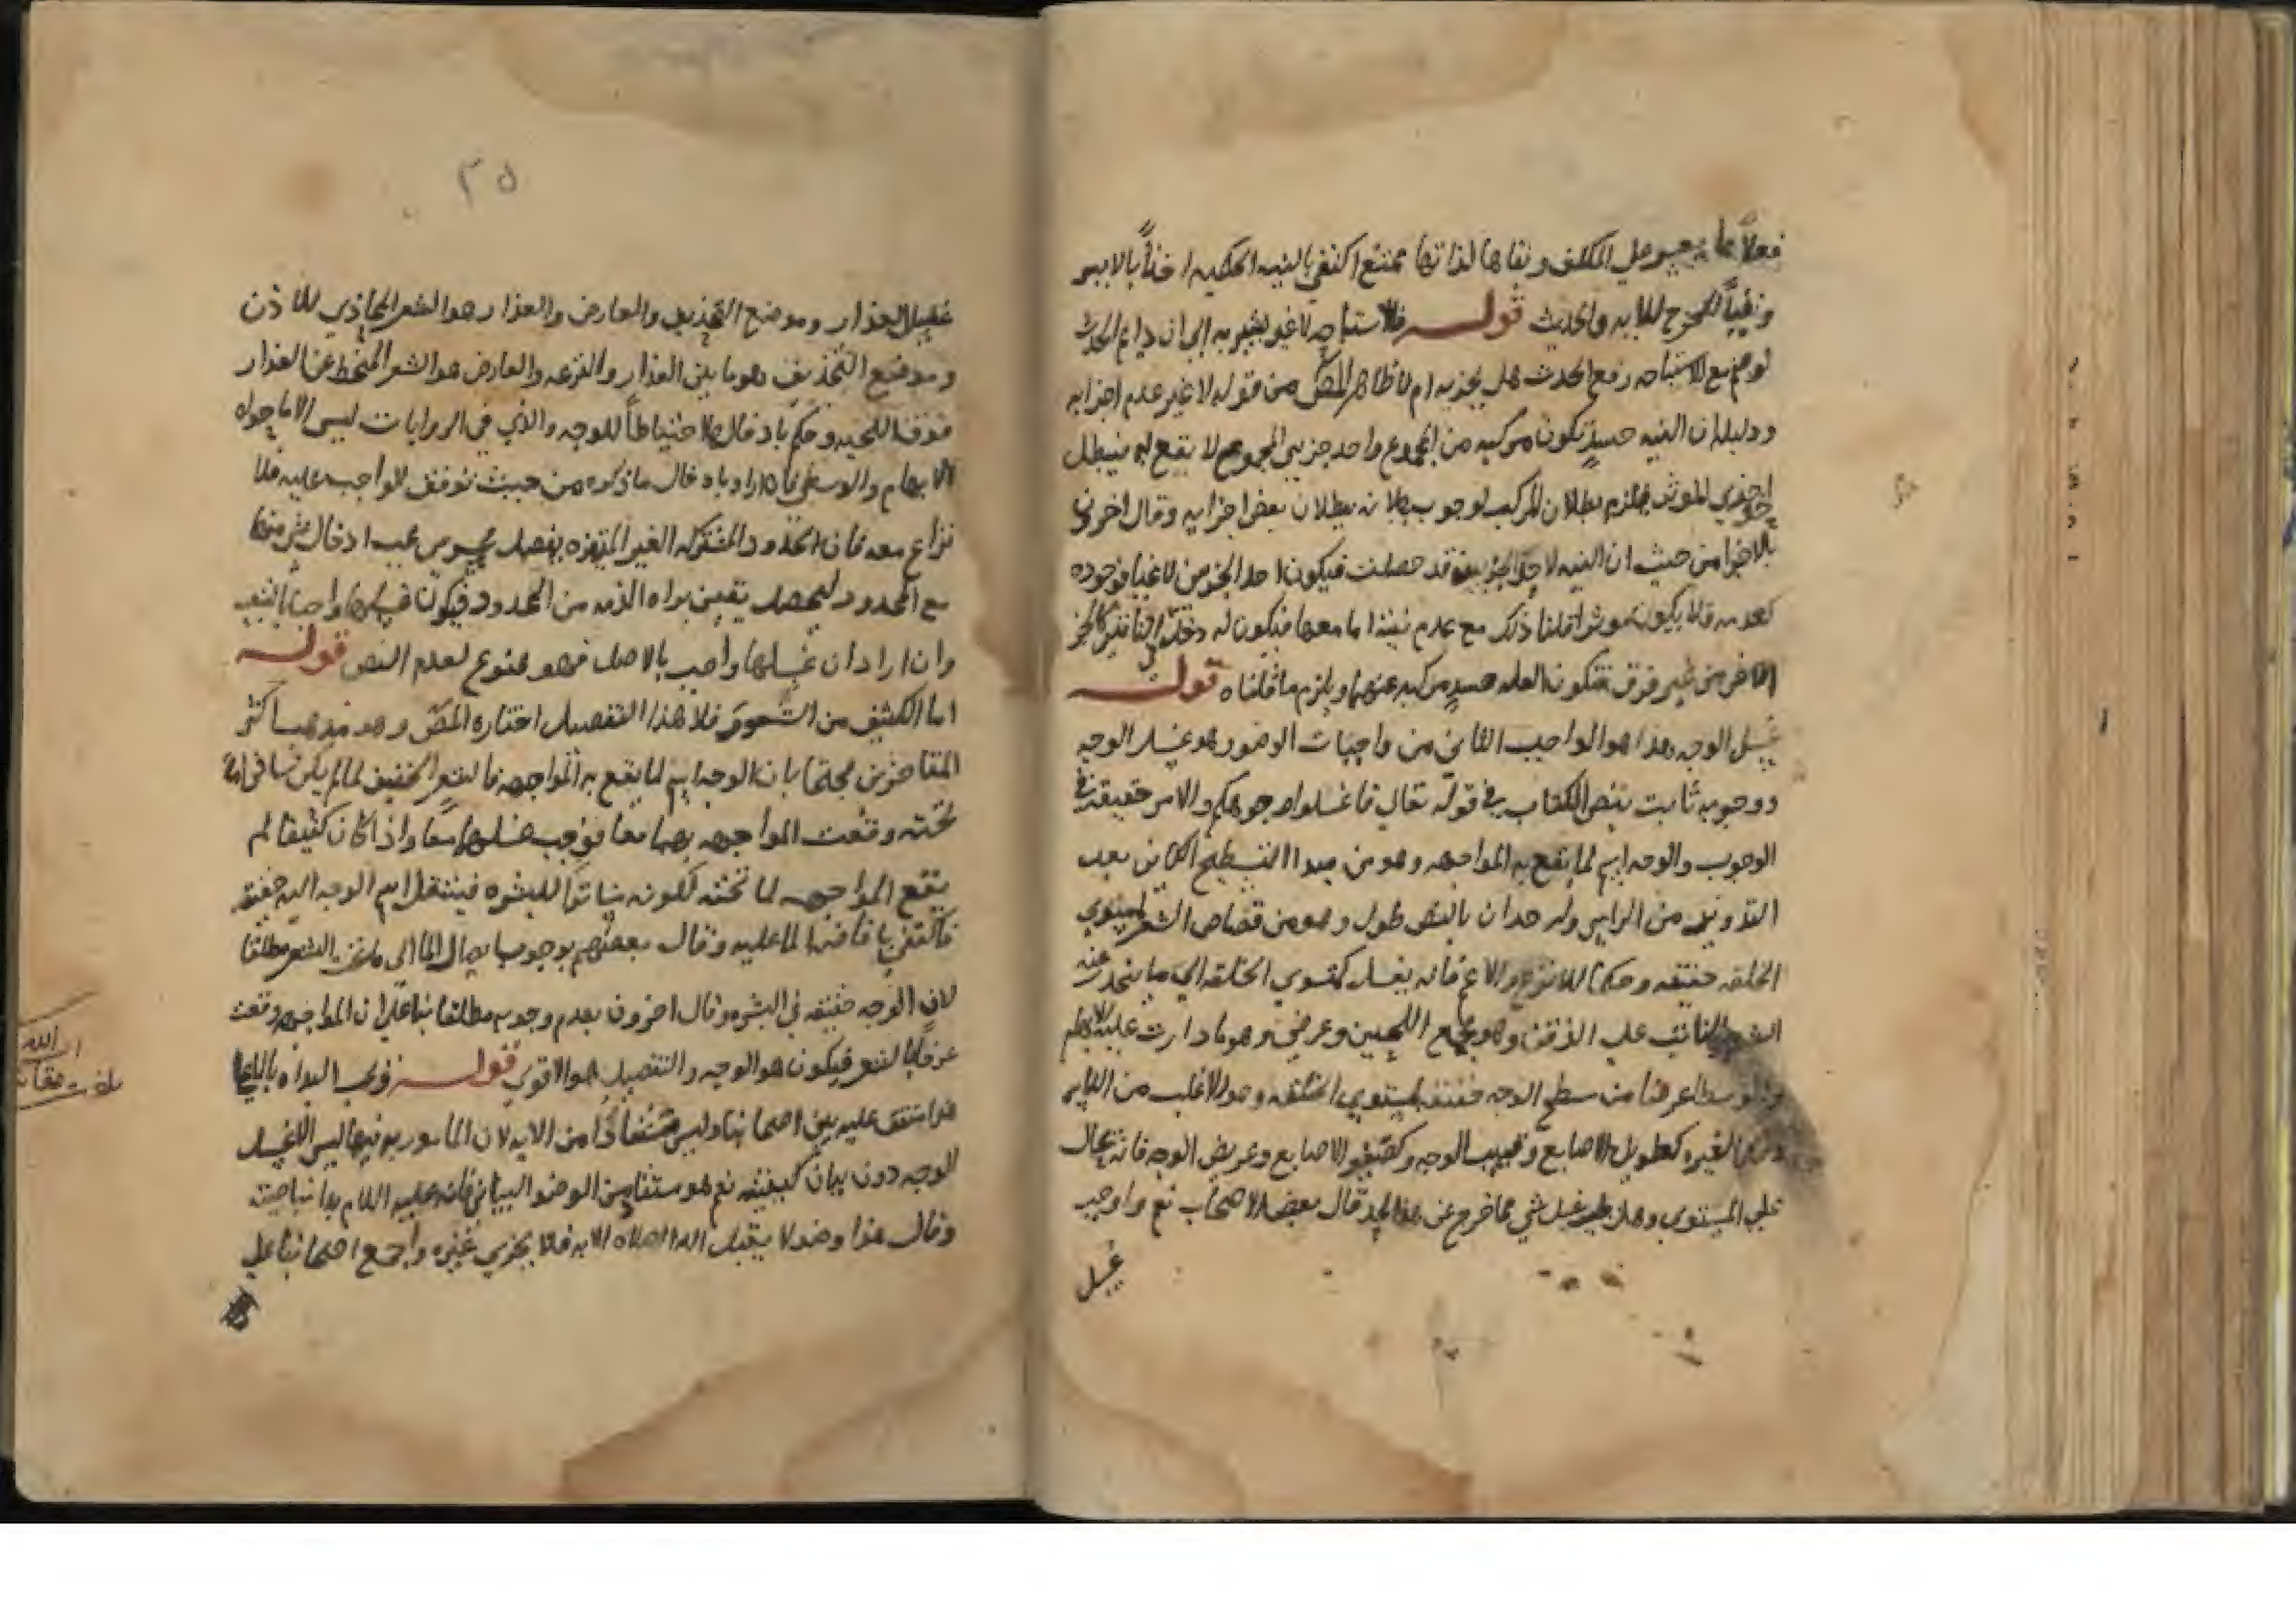 فعلاً مما يعسر على المكلف وبقاها لذاتها ممتنع اكتفى بالنيه الحكميه اخذاً بالايسر
ونفياً للحرج للايه والحديث قوله فالاستباحه لا غير يشير به الى ان دايم الحدث
لو ضم مع الاستباحه رفع الحدث هل يجزيه ام لا ظاهر المصّ من قوله لا غير عدم اجزايه
ودليله ان النيه حينيذ تكون مركبه من المجموع واحد جزيي المجموع لا يقع فيبطل
فيلزم بطلان المركب لوجوب بطلانه ببطلان بعض اجزايه وقال اخرون
بالاجزا من حيث ان النيه قد حصلت فيكون احد الجزين لاغيا فوجوده
كعدمه فلا يكون موثرا قلنا ذلك مع عدم نيته اما معها فيكون له دخل في التاثير كالجز
الاخر من غير فرق فتكون العله حينيذ مركبه عنهما ويلزم ما قلناه قوله
غسل الوجه هذا هو الواجب الثاني من واجبات الوضو وهو غسل الوجه
ووجوبه ثابت بنص الكتاب في قوله تعالى فاغسلوا وجوهكم والامر حقيقه في
الوجوب والوجه اسم لما يقع به المواجهه وهو من مبدا التسطيح الكاين بعد
التدوير من الراس وله حدان بالنص طول وهو من قصاص الشعر لمستوي
الخلقه حقيقه وحكما للانزع والاغم فانه يغسل كمستوي الخلقه الى ما ينحدر عنه
الشعر النابت على الذقن وهو مجمع اللحيين وعرضي وهو ما دارت عليه الابهام
والوسطى عرضا من سطح الوجه حقيقه لمستوي الخلقه وهو الاغلب من الناس
وحكما لغيره كطويل الاصابع وقصير الوجه وكقصير الاصابع وعريض الوجه فانه يحال
على المستوي وهل يجب غسل شي مما خرج عن هذا الحد قال بعض الاصحاب نعم واوجب
غسل
٢٥
غسل العذار وموضع التحذيف والعارض والعذار هو الشعر المحاذي للاذن
وموضع التحذيف وهو ما بين العذار والنزعه والعارض هو الشعر المنحط عن العذار
فوق اللحيه وحكم بادخالها احتياطاً للوجه والذي في الروايات ليس الا ما حواه
الابهام والوسطى فان اراد بادخال ما ذكره من حيث توقف الواجب عليه فلا
نزاع معه فان الحدود المشتركه الغير المتميزه بفصل محسوس يجب ادخال شي منها
مع المحدود ليحصل تيقن براه الذمه من المحدود فيكون غسلها واجبا بالتبع
وان اراد ان غسلها واجب بالاصل فهو ممنوع لعدم النص قوله
اما الكثيف من الشعور فلا هذا التفصيل اختاره المصّ وهو مذهب اكثر
المتاخرين محتجا بان الوجه اسم لما يقع به المواجهه فالشعر الخفيف لما لم يكن ساترا لما
تحته وقعت المواجهه بهما معا فوجب غسلهما معا واذا كان كثيفا لم
يقع المواجهه لما تحته لكونه ساترا للبشره فينتقل اسم الوجه اليه حقيقه
فاكتفي بافاضه الما عليه وقال بعضهم بوجوب ايصال الما الى ما تحت الشعر مطلقا
لان الوجه حقيقه في البشره وقال اخرون بعدم وجوبه مطلقا بناء على ان المواجهه وقعت
عرفا بالشعر فيكون هو الوجه والتفصيل هو الاقوى قوله وجوب البداه بالاعلى
هذا متفق عليه بين اصحابنا وليس مستفادا من الايه لان المامور به فيها ليس الا غسل
الوجه دون بيان كيفيته نعم هو مستفاد من الوضو البياني فانه عليه السلام بدا بناصيته
وقال هذا وضو لا يقبل الله الصلاه الا به فلا يجزي غيره واجمع اصحابنا على
الله